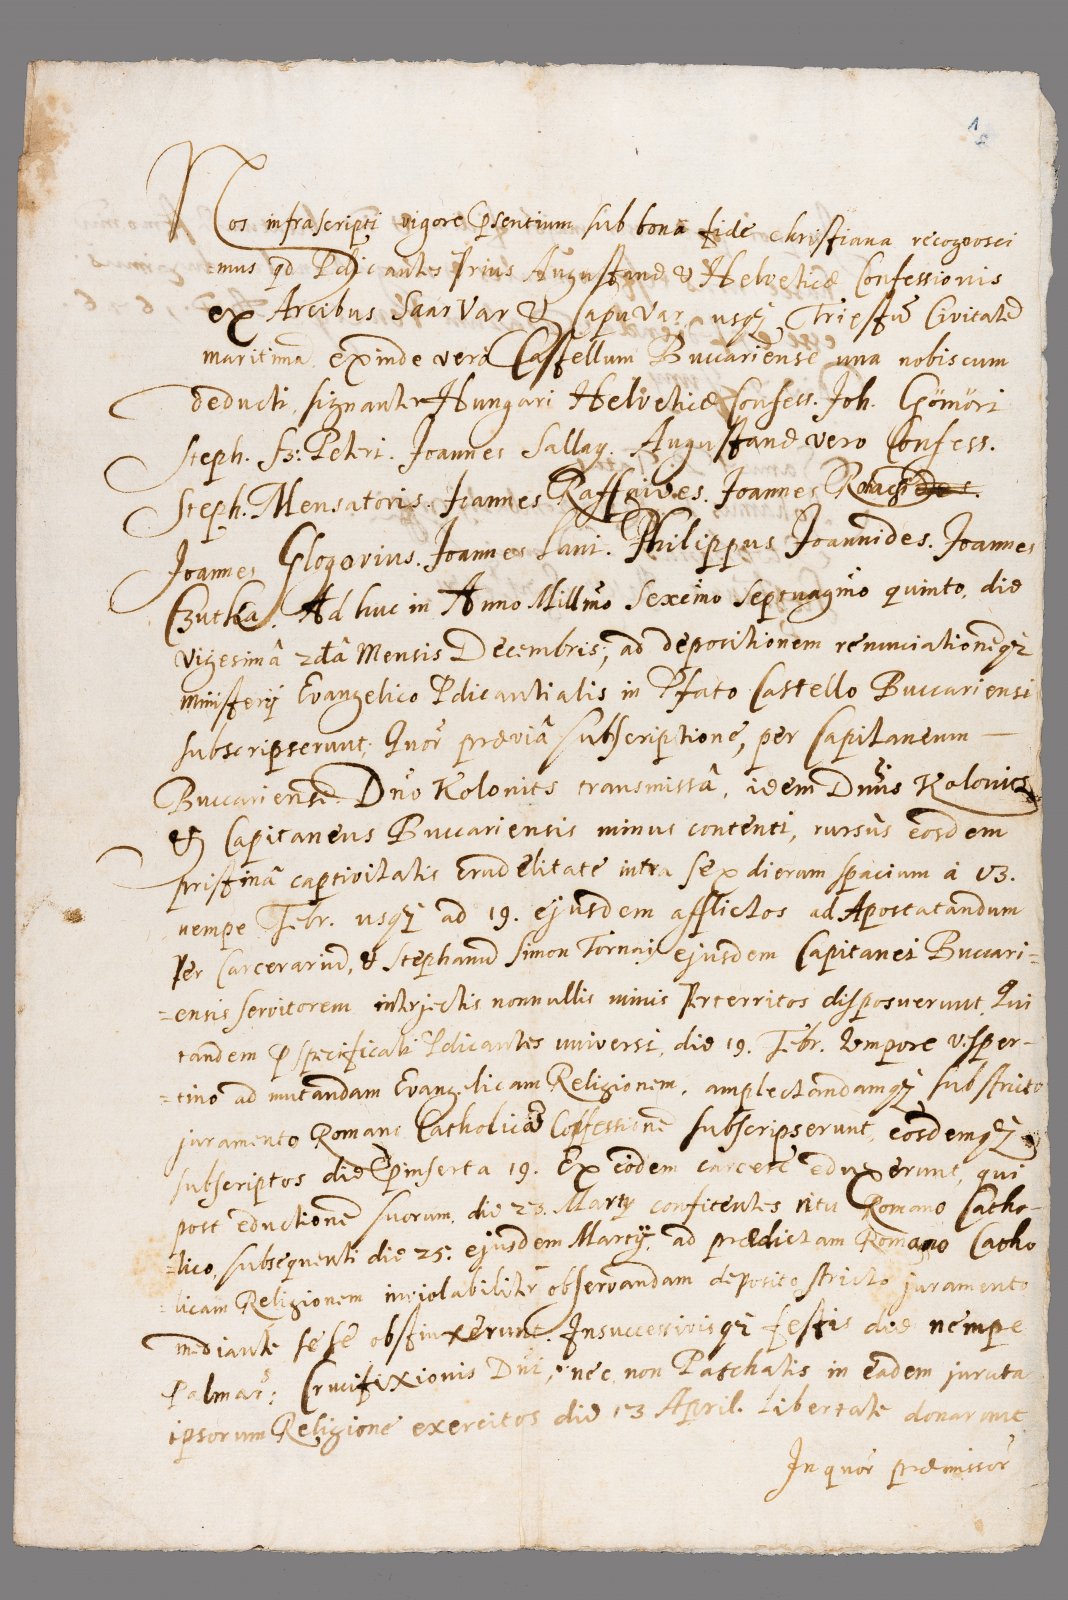 Nos infrascripti vigore p̄sentium sub bona fide christiana recognosci
mus qd P̄dicantes prius Augustanæ & Helveticæ Confessionis
ex Arcibus Saar Var & Capu Var usq̄ Triestū Civitatē
maritimā exinde verò Castellum Buccariense una nobiscum
deducti, signanter Hungari Helveticæ Confess. Joh. Gömöri
Steph. Sz: Petri. Joannes Sallay. Augustanæ vero Confess.
Steph. Mensatoris. Joannes Raffnives. Joannes
Joannes Glogovius. Joannes Lani. Philippus Joannides. Joannes
Czutka. Ad huc in Anno Millmo Sexcmo Septuagmo quinto, die
vigesimâ 2dâ Mensis Decembris; ad depositionem renunciationēq̄
ministerÿ Evangelico P̄dicantialis in P̄fato Castello Buccariensi
subscripserunt; Quor̄ præviâ subscriptione, per Capitaneum —
Buccariensē Dn̄o Kolonits transmissâ, idem Dn̄us Kolonics
& Capitaneus Buccariensis minus contenti, rursùs eosdem
pristinâ captivitatis crudelitate intra sex dierum spacium à 13.
nempe Febr. usq̄ ad 19. ejusdem afflictos ad Apostatandum
Per Carcerariū, & Stephanū Simon Tornai ejusdem Capitanei Buccari=
=ensis servitorem intrjectis nonnullis minis Prterritos disposuerunt, Qui
tandem p̄specificati P̄dicantes universi, die 19. Febr. tempore vesper-
=tino ad mutandam Evangelicam Religionem, amplectandamq̄ sub stricto
juramento Romano Catholicā Coffessionē subscripserunt, eosdemq̄
subscriptos die p̄inserta 19. Ex eôdem carcere eduxerunt, qui
post eductionē suorum, die 23. Martÿ confitentes ritu Romano Catho-
=lico, subsequenti die 25. ejusdem Martÿ, ad prædictam Romano Catho
=licam Religionem inviolabilitèr observandam deposito stricto juramento
mediante sese obstinxerunt. Insuccessivisq̄ festis die nempe
Palmar̄: Crucifixionis Dn̄i, nec non Paschatis in eâdem jurata
ipsorum Religione exercitos die 13 April. Libertate donarunt
In quor̄ præmissor̄